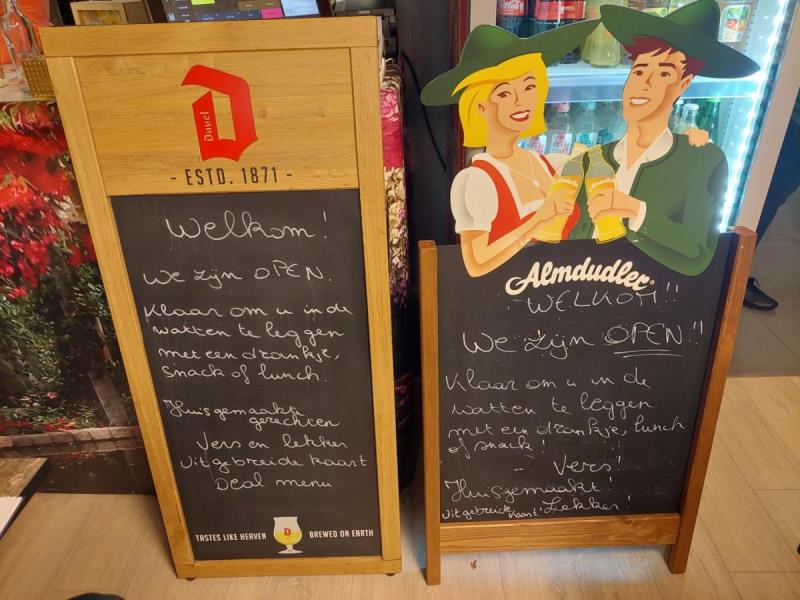 Duvel
- ESTD. 1871 -
Welkom!
We zijn OPEN.
Klaar om u in de
watten te leggen
met een drankje,
snack of lunch.
Huisgemaakte
gerechten
Vers en lekker
uitgebreide kaart
Deal menu
TASTES LIKE HEAVEN BREWED ON EARTH
Almdudler
WELKOM!!
We zijn OPEN!!
Klaar om u in de
watten te leggen
met een drankje, lunch
of snack!
- Vers!
Huisgemaakt!
uitgebreide kaart! Lekker!